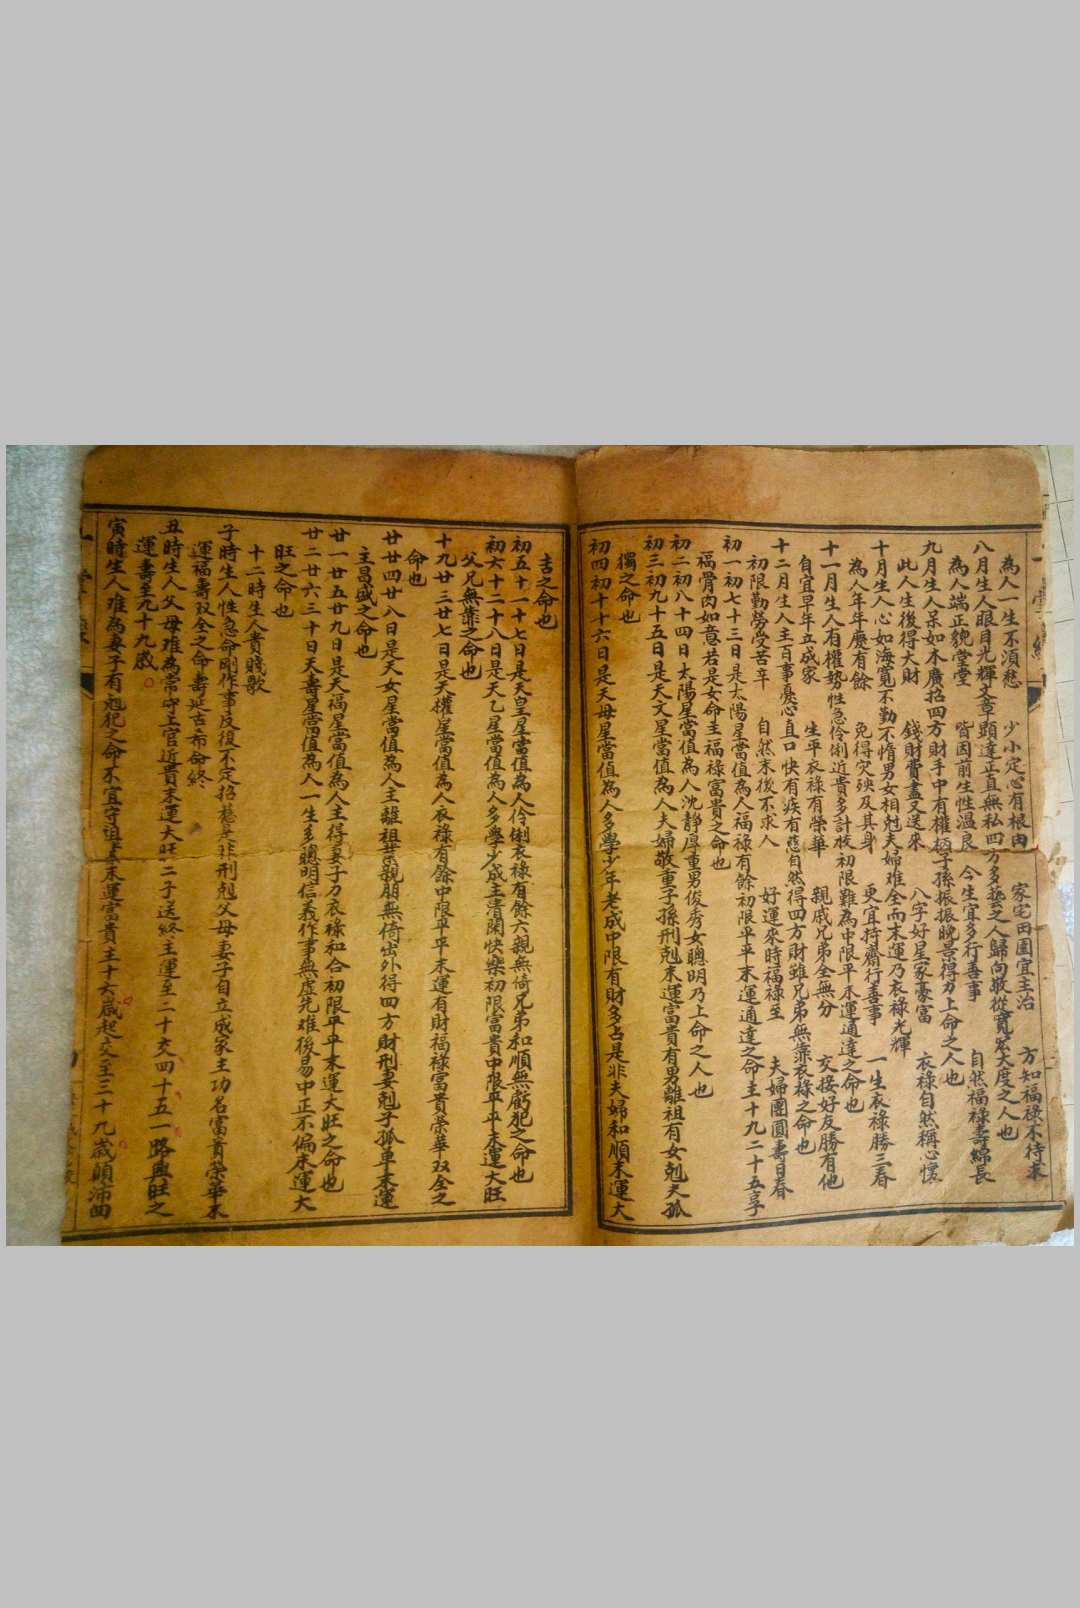 為人一生不須愁 少小定心有根由 家宅田園宜主治 方知福祿不待求
八月生人眼目光輝文章顕達正直無私四方多藝之人歸向敬從寬宏大度之人也
為人端正貌堂堂 皆因前生性溫良 今生宜多行善事 自然福祿壽綿長
九月生人呆如木廣招四方財手中有權柄子孫振振晚景得力上命之人也
此人生後得大財 錢財費盡又送來 八字好星家豪富 衣祿自然稱心懷
十月生人心如海寬不勤不惰男女相尅夫婦难全而末運乃衣祿光輝
為人年年慶有餘 免得灾殃及其身 更宜持齋行善事 一生衣祿勝三春
十一月生人有權勢性急伶俐近貴多計歧初限難為中限平末運通達之命也
自宜早年立成家 生平衣祿有榮華 親戚兄弟全無分 交接好友勝有他
十二月生人主百事憂心直口快有疾有慈自然得四方財雖兄弟無靠衣祿之命也
初限勤勞受苦辛 自然末後不求人 好運來時福祿至 夫婦團圓壽日春
初一初七十三日是太陽星當值為人福祿有餘初限平平末運通達之命主十九二十五享
福骨肉如意若是女命主福祿富貴之命也
初二初八十四日太陽星當值為人沈靜厚重男俊秀女聰明乃上命之人也
初三初九十五日是天文星當值為人夫婦敬重子孫刑剋末運富貴有男離祖有女剋夫孤
獨之命也
初四初十十六日是天母星當值為人多學少年老成中限有財多占是非夫婦和順末運大
吉之命也
初五十一十七日是天皇星當值為人伶俐衣祿有餘六親無倚兄弟和順無虧犯之命也
初六十二十八日是天乙星當值為人多學少成主清閑快樂初限富貴中限平平末運大旺
父兄無靠之命也
十九廿三廿七日是天權星當值為人衣祿有餘中限平平末運有財福祿富貴榮華双全之
命也
廿廿四廿八日是天女星當值為人主離祖業親朋無倚出外得四方財刑妻剋子孤單末運
主昌盛之命也
廿一廿五廿九日是天福星當值為人主得妻子力衣祿和合初限平平末運大旺之命也
廿二廿六三十日天壽星當值為人一生多聰明信義作事無虛先难後易中正不偏末運大
旺之命也
十二時生人貴賤歌
子時生人性急命剛作事反復不定招惹是非刑剋父母妻子自立成家主功名富貴榮華末
運福壽双全之命壽延古希命終
丑時生人父母难為常守上官近貴末運大旺二子送終主運至二十交四十五一路興旺之
運壽至九十九歲
寅時生人难為妻子有尅犯之命不宜守祖業末運富貴主十六歲起交至三十九歲顛沛四